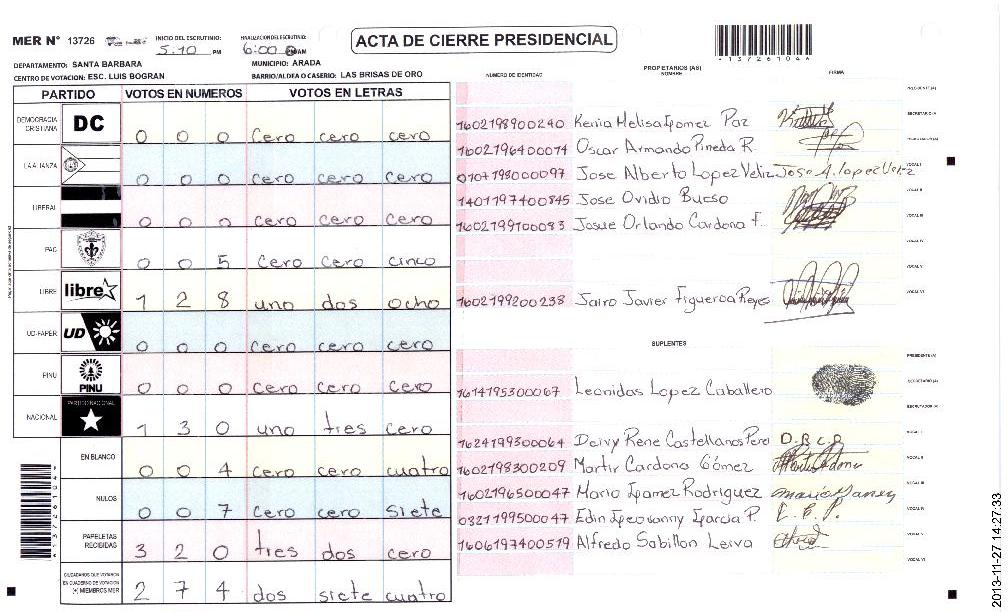 MER N° 13726 INICIO DEL ESCRUTINIO: 5:10 PM FINALIZACION ESCRUTINIO: 6:00 PM/AM
ACTA DE CIERRE PRESIDENCIAL
DEPARTAMENTO: SANTA BARBARA MUNICIPIO: ARADA
CENTRO DE VOTACION: ESC. LUIS BOGRAN BARRIO/ALDEA O CASERIO: LAS BRISAS DE ORO
13726104
PARTIDO VOTOS EN NUMEROS VOTOS EN LETRAS
DEMOCRACIA CRISTIANA DC 0 0 0 cero cero cero
LA ALIANZA 0 0 0 cero cero cero
LIBERAL 0 0 0 cero cero cero
PAC 0 0 5 cero cero cinco
LIBRE libre 1 2 8 uno dos ocho
UD-FAPER UD 0 0 0 cero cero cero
PINU PINU 0 0 0 cero cero cero
NACIONAL PARTIDO NACIONAL 1 3 0 uno tres cero
EN BLANCO 0 0 4 cero cero cuatro
NULOS 0 0 7 cero cero siete
PAPELETAS RECIBIDAS 3 2 0 tres dos cero
CIUDADANOS QUE VOTARON EN CUADERNO DE VOTACION (+) MIEMBROS MER 2 7 4 dos siete cuatro
NUMERO DE IDENTIDAD PROPIETARIOS (AS) NOMBRE FIRMA
PRESIDENTE (A)
1602198900240 Kenia Melisa Gomez Paz SECRETARIO (A)
1602196400074 Oscar Armando Pineda R. ESCRUTADOR (A)
0107198000097 Jose Alberto Lopez Veliz Jose A. lopez Veliz VOCAL I
1401197400845 Jose Ovidio Bueso VOCAL II
1602199100083 Josue Orlando Cardona F. VOCAL III
VOCAL IV
VOCAL V
1602199200238 Jairo Javier Figueroa Reyes VOCAL VI
SUPLENTES
PRESIDENTE (A)
1614195300067 Leonidas Lopez Caballero SECRETARIO (A)
ESCRUTADOR (A)
1624199300064 Deivy Rene Castellanos D.R.C.P VOCAL I
1602198300209 Martir Cardona Gómez VOCAL II
1602196500047 Mario Gamez Rodriguez VOCAL III
0321199500047 Edin Geovanny Garcia P. VOCAL IV
1606197400519 Alfredo Sabillon Leiva VOCAL V
VOCAL VI
2013-11-27 14:27:33